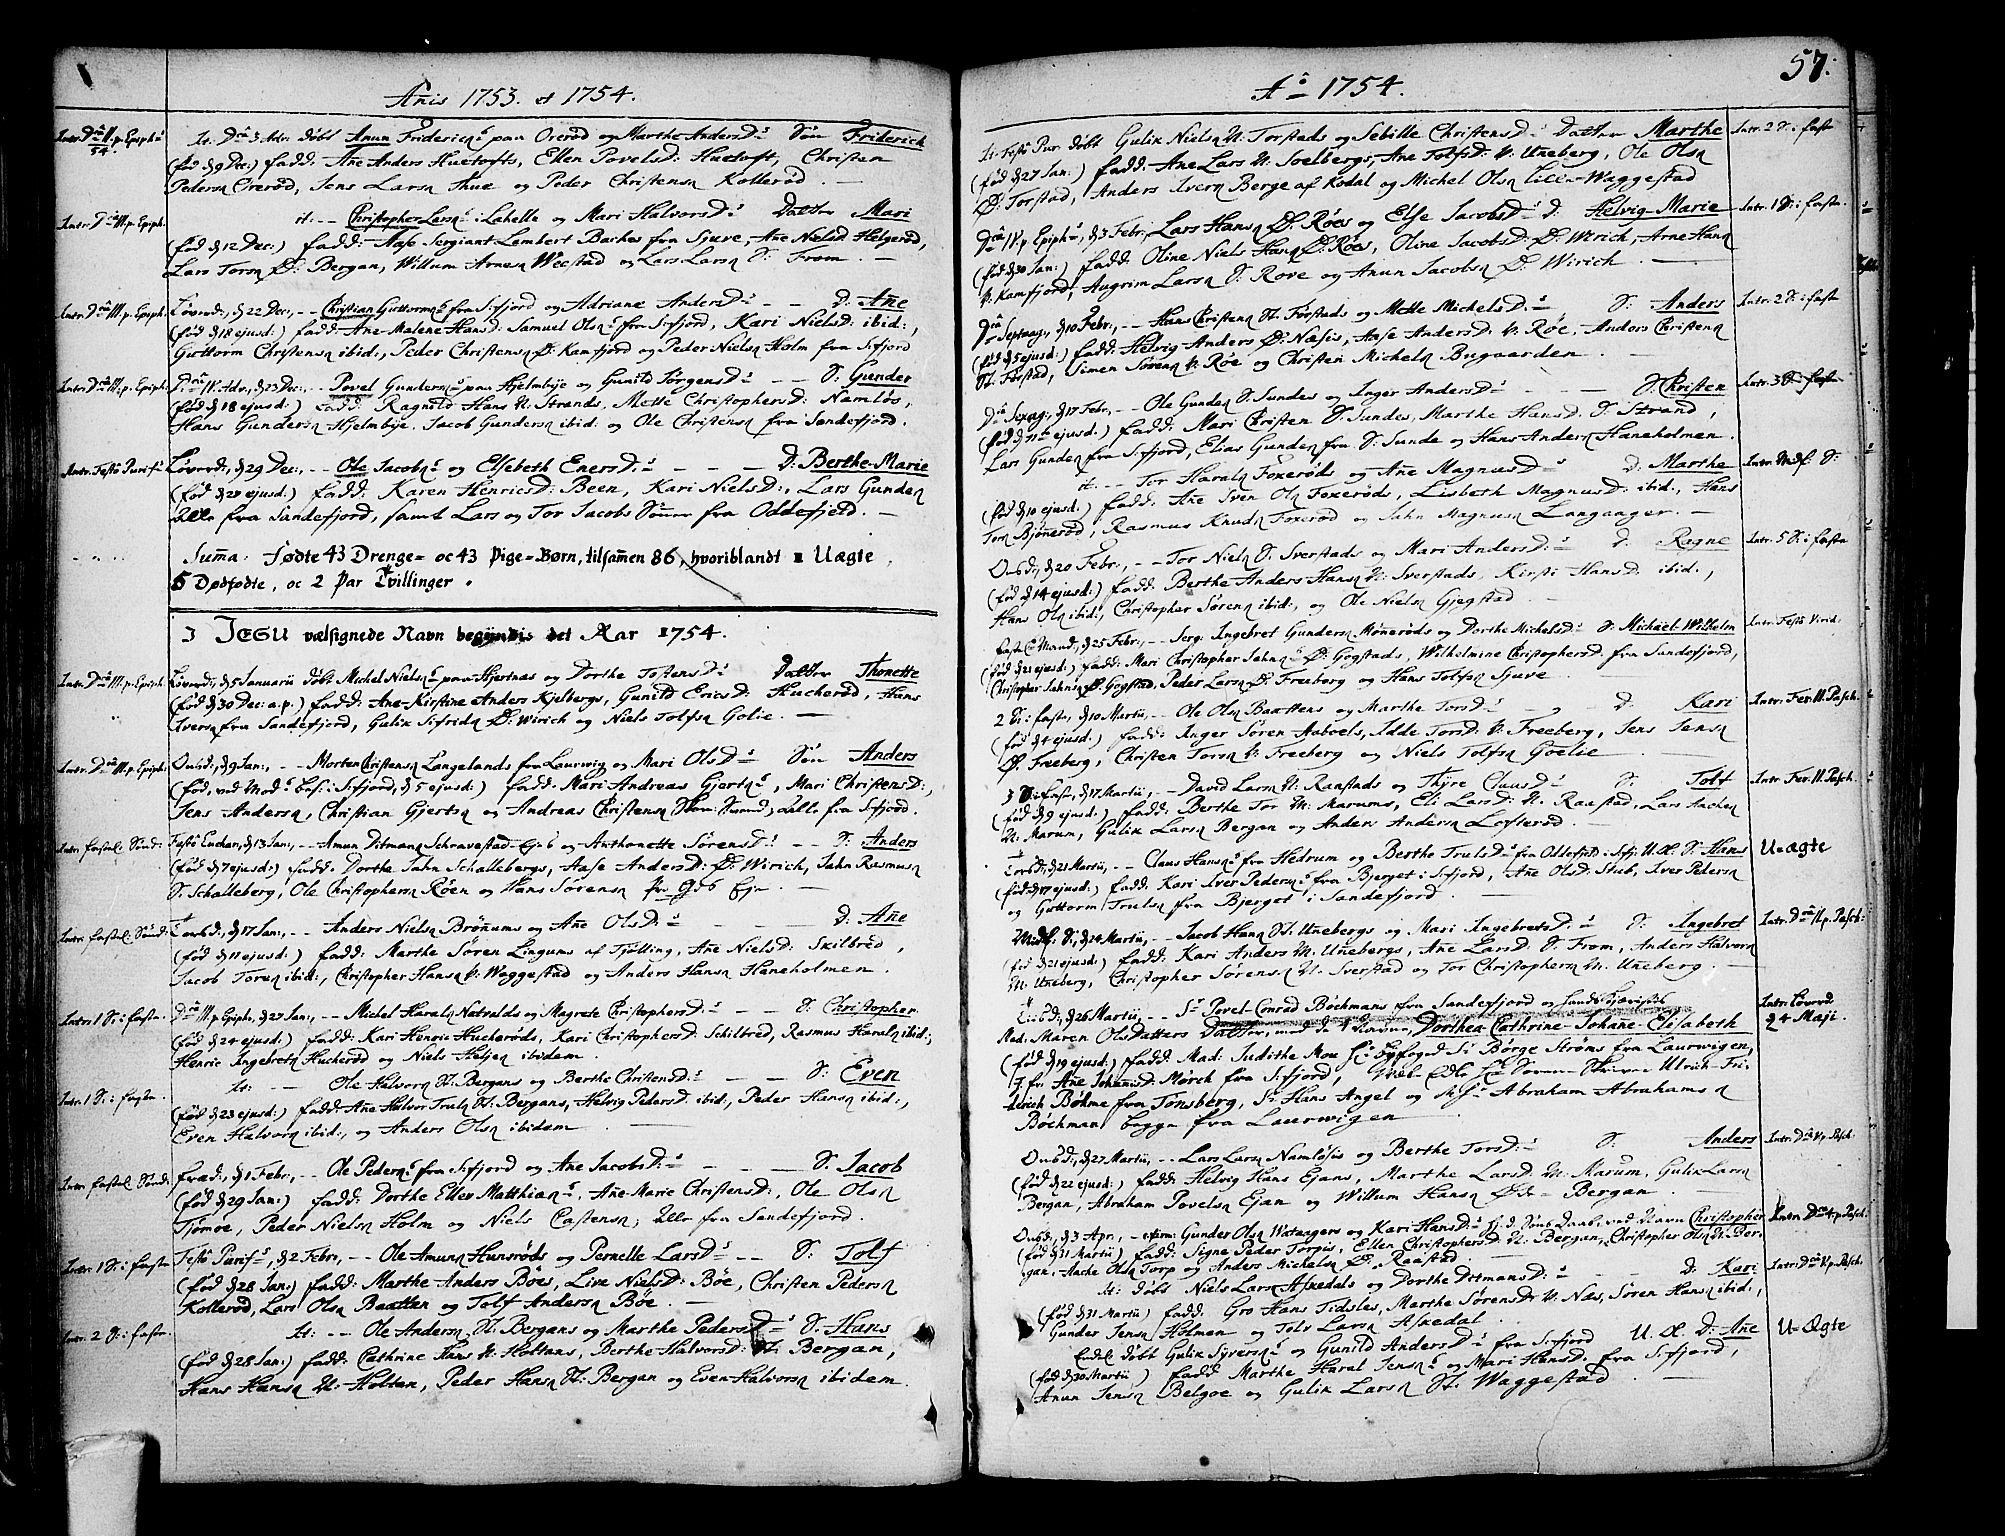 Anis 1753. et 1754.
Intr. D. II. p. Epiph. 54.
It. D. 3 Adv. døbt Anun Friderichs paa Orerød og Marthe Anders D: Søn Friderich
(fød d. 9 Dec:) fadd: Ane Anders Huetofts, Ellen Povels D: Huetoft, Christen
Peders Orerød, Jens Lars Thue og Peder Christens Kollerød. —
Intr. D. III. p. Epiph.
it: — Christopher Lars i Lahelle og Mari Halvors D: Datter Mari
(fød d. 12 Dec:) fadd: Aase Sergiant Lambert Baches fra Sjuve, Ane Niels D: Helgerød,
Lars Tors Ø: Bergan, Willum Arnes Weestad og Lars Lars S: From. —
Intr. D. III. p. Epiph.
Løverd:, d. 22 Dec:, — Christian Guttorms fra S.fjord og Adriane Anders D: — D: Ane
(fød d. 18 ejusd:) fadd: Ane Malene Hans D: Samuel Ols fra S.fjord, Kari Niels D: ibid:,
Guttorm Christens ibid:, Peder Christens Ø: Kamfjord og Peder Niels Holm fra S.fjord
Intr. D. III. p. Epiph.
D. IV. Adv., d. 23 Dec:, — Povel Gunders paa Hjelmbye og Gunild Jørgens D: — S: Gunder
(fød d. 18 ejusd:) fadd: Ragnild Hans N: Strands, Mette Christophers D: Namløs,
Hans Gunders Hjelmbye, Jacob Gunders ibid: og Ole Christens fra Sandefjord.
Intr. Festo Purif.
Løverd:, d. 29 Dec:, — Ole Jacobs og Elsebeth Eners D: — D: Berthe-Marie
(fød d. 28 ejusd:) fadd: Karen Henrics D: Been, Kari Niels D:, Lars Gunders
alle fra Sandefjord, samt Lars og Tor Jacobs Sønner fra Oddefjeld. —
Suma: Fødte 43 Drenge- oc 43 Pige-Børn, tilsamen 86, hvoriblandt 1 Uægte,
5 Dødfødte, oc 2 Par Tvillinger.
I JESU velsignede Navn begyndis det Aar 1754.
Intr. D. III. p. Epiph.
Løverd:, d. 5 Januarii døbt Michel Niels paa Hjertnas og Dorthe Tostens D: Datter Thonette
(fød d. 30 Dec: a.p.) fadd: Ane-Kirstine Anders Kjelbergs, Gunild Erics D: Huckerød, Hans
Ivers fra Sandefjord, Gulik Sifrids Ø: Wirich og Niels Tolfs Golie. —
Intr. D. III. p. Epiph:
Onsd:, d. 9 Jan:, — Morten Christens Langelands fra Laurwig og Mari Ols D: Søn Anders
(fød, ved S.fjord, d. 5 ejusd:) fadd: Mari Andreas Gjerts, Mari Christens D:,
Jens Anders, Christian Gjerts og Andreas Christens, alle fra S.fjord.
Intr. fastel. Sønd:
Festo Euchar., d. 13 Jan:, — Amun Ditmans Schravestad og Anthonette Sørens D: S: Anders
(fød d. 7 ejusd:) fadd: Dorthe Jahn Schallebergs, Aase Anders D: Ø: Wirich, Jahn Rasmus
S: Schalleberg, Ole Christophers Røen og Hans Sørens
Intr. fastel. Sønd:
Torsd:, d. 17 Jan:, — Anders Niels Brønums og Ane Ols D: — D: Ane
(fød d. 11 ejusd:) fadd: Marthe Søren Lingums af Tjølling, Ane Niels D: Skilbred,
Jacob Tores ibid:, Christopher Hans V: Waggestad og Anders Hans Haneholmen.
Intr. 1 S: i fasten
D. III. p. Epiph., d. 27 Jan:, — Michel Harals Natvalds og Magrete Christophers D: — S: Christopher
(fød d. 24 ejusd:) fadd: Kari Henric Huckerøds, Kari Christophers D: Schilbred, Rasmus Harals ibid:,
Henric Ingebrets Huckerød og Niels Heljes ibidem.
Intr. 1 S: i fasten.
It: — Ole Halvors N: Bergans og Berthe Christens D: — S: Even
(fød d. 23 ejusd:) fadd: Ane Halvor Truls N: Bergans, Helvig Peders D: ibid:, Peder Hans ibid:,
Even Halvors ibid:, og Anders Ols ibidem —
Intr. fastel. Sønd:
Fred:, d. 1 Febr:, — Ole Peders fra S.fjord og Ane Jacobs D: — S: Jacob
(fød d. 29 Jan:) fadd: Dorthe Ellev Matthias, Ane-Marie Christens D:, Ole Ols
Tjømøe, Peder Niels Holm og Niels Castens, alle fra Sandefjord.
Intr. 1 S: i fasten
Festo Purif., d. 2 Febr:, — Ole Amuns Hunsrøds og Pernelle Lars D: — S: Tolf
(fød d. 28 Jan:) fadd: Marthe Anders Bøes, Live Niels D: Bøe, Christen Peders
Kollerød, Lars Ols Baatten og Tolf Anders Bøe. —
Intr. 2 S: i fasten.
it: — Ole Anders N: Bergans og Marthe Peders D: S: Hans
(fød d. 28 Jan:) fadd: Cathrine Hans N: Holtans, Berthe Halvors D: N: Bergan,
Hans Hans N: Holtan, Peder Hans N: Bergan og Even Halvors ibidem.
Ao 1754.
57.
It. Festo Pur. døbt Gulik Niels N: Torstads og Sebille Christens D: Datter Marthe
Intr. 2 S: i fast
(fød d. 27 Jan:) fadd: Ane Lars N: Soelbergs, Ane Tolfs D: V: Uneberg, Ole Ols
Ø: Torstad, Anders Ivers Berge af Kodal og Michel Ols Lille-Waggestad
D. IV. p. Epiph., d. 3 Febr:, Lars Hans Ø: Røes og Else Jacobs D: D: Helvig-Marie
Intr. 1 S: i fasten
(fød d. 30 Jan:) fadd: Oline Niels Hans Ø: Røes, Oline Jacobs D: Ø: Wirich, Arne Hans
V: Kamfjord, Augrim Lars S: Rove og Anun Jacobs Ø: Wirich. —
D. Septuag:, d. 10 Febr:, — Hans Christens N: Forstads og Mette Michels D: S: Anders
Intr. 2 S: i fast
(fød d. 5 ejusd:) fadd: Helvig Anders Ø: Næsis, Aase Anders D: V: Røe, Anders Christens
N: Forstad, Simen Sørens V: Røe og Christen Michels Bugaarden. —
D. Sexag:, d. 17 Febr:, — Ole Gunders S: Sundes og Inger Anders D: — S: Christen
Intr. 3 S: i fasten
(fød d. 11 ejusd:) fadd: Mari Christen S: Sundes, Marthe Hans D: S: Strand,
Lars Gunders fra S.fjord, Elias Gunders fra S: Sunde og Hans Anders Haneholmen.
it: — Tor Harals Foxerøds og Ane Magnus D: D: Marthe
Intr. Midf. S:
(fød d. 10 ejusd:) fadd: Ane Iven Ols Foxerøds, Lisbeth Magnus D: ibid:, Hans
Tors Bjønerød, Rasmus Knuds Foxerød og Jahn Magnus Langaager. —
Onsd:, d. 20 Febr:, — Tor Niels N: Sverstads og Mari Anders D: D: Ragne
Intr. 5 S: i fasten
(fød d. 14 ejusd:) fadd: Berthe Anders Hans N: Sverstads, Kirsti Hans D: ibid:,
Hans Ols ibid:, Christopher Sørens ibid:, og Ole Niels Gjegstad. —
Fastel. Mand:, d. 25 Febr:, — Serg: Ingebret Gunders Mønerøds og Dorthe Michels D: S: Michael Wilhelm
Intr. Festo Virid.
(fød d. 21 ejusd:) fadd: Mari Christopher Jahns Ø: Gogstads, Wilhelmine Christophers D: fra Sandefjord,
Christopher Jahns Ø: Gogstad, Peder Lars Ø: Freeborg og Hans Tolfs Sjuve —
2 S: i faste, d. 10 Martii, — Ole Ols Baattens og Marthe Tors D: — D: Kari
Intr. Fer. II. Pasch.
(fød d. 4 ejusd:) fadd: Inger Søren Aaboels, Idde Tors D: V: Freeberg, Jens Jens
Ø: Freeberg, Christen Tors V: Freeberg og Niels Tolfs Goelie —
3 S: i Fast, d. 17 Martii, — David Lars N: Ranstads og Thyre Claus D: S: Tolf
Intr. Fer. II. Pasch.
(fød d. 9 ejusd:) fadd: Berthe Tor N: Marums, Eli Lars D: N: Raastad, Lars
N: Marum, Gulik Lars Bergan og Anders Anders Lofterød. —
Torsd:, d. 21 Martii, — Claus Hans fra Hedrum og Berthe Truls D: fra Oddefjeld i S.fj: U. Æ. S: Hans
U-ægte
(fød d. 17 ejusd:) fadd: Kari Iver Peders fra Bjerget i S.fjord, Ane Ols D: Stub, Iver Peders
og Guttorm Truls fra Bjerget i Sandefjord.
Midf. S:, d. 24 Martii, — Jacob Hans N: Unebergs og Mari Ingebrets D: S: Ingebret
Intr. D. II. p. Pasch:
(fød d. 21 ejusd:) fadd: Kari Anders M: Unebergs, Ane Lars D: S: From, Anders Halvors
M: Uneberg, Christopher Sørens N: Sverstad og Tor Christophers M: Uneberg. —
Tiisd:, d. 26 Martii, — Sr Povel-Conrad Bøchmans fra Sandefjord og
Intr. Løverd. 24 Maji.
Mad: Maren Olsdatters Datter, med 4 Navne, Dorthea-Cathrine-Johane-Elisabeth
(fød d. 19 ejusd:) fadd: Mad: Judithe Moe Hr. byfoged Sr: Børge Strøms fra Laurwigen,
Jfr. Ane Johans D: Mørch fra S.fjord, Ulrich-Fri-
derich Bøhme fra Tønsberg, Sr Hans Angel og Abraham Abrahams
Bøchman begge fra Laurwigen
Onsd:, d. 27 Martii, — Lars Lars Namløsis og Berthe Tors D: S: Anders
Intr. D. V. p. Pasch.
(fød d. 22 ejusd:) fadd: Helvig Hans Ejans, Marthe Lars D: N: Marum, Gulik Lars
Bergan, Abraham Povels Ejan og Willum Hans Ø: Bergan. —
Onsd:, d. 3 Apr:, — Gunder Ols Watangers og Kari Hans D: Hj. d. Søns Daab, ved Navn Christopher
Intr. D. 4. p. Pasch.
(fød d. 31 Martii) fadd: Signe Peder Torpis, Ellen Christophers D: N: Bergan, Christopher Ols N: Ber-
gan, Anche Ols Torp og Anders Michels Ø: Raastad
It: døbt Niels Lars Askedals og Dorthe Ditmans D: — D: Kari
Intr. D. V. p. Pasch.
(fød d. 31 Martii) fadd: Gro Hans Tidsles, Marthe Sørens D: V: Næs, Søren Hans ibid:,
Gunder Jens Holmen og Tolv Lars Askedal.
døbt Gulik Syvers og Gunild Anders D: fra S.fjord U. Æ. D: Ane
U-Ægte
(fød d. 30 Martii) fadd: Marthe Haral Jens og Mari Hans D: fra S.fjord,
Anun Jens Belgoe og Gulik Lars N: Waggestad —